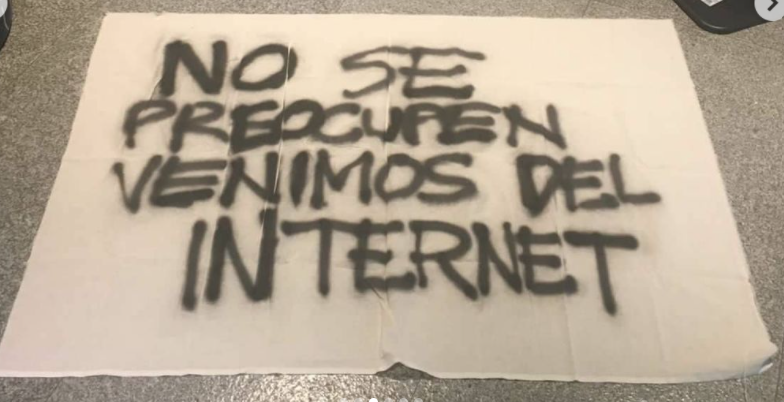 NO SE
PREOCUPEN
VENIMOS DEL
INTERNET